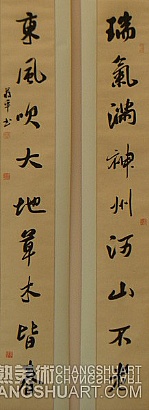 瑞氣滿神州河山不
東風吹大地草木皆春
書
熟美術 CHANGSHUART
CHANGSHUART.COM